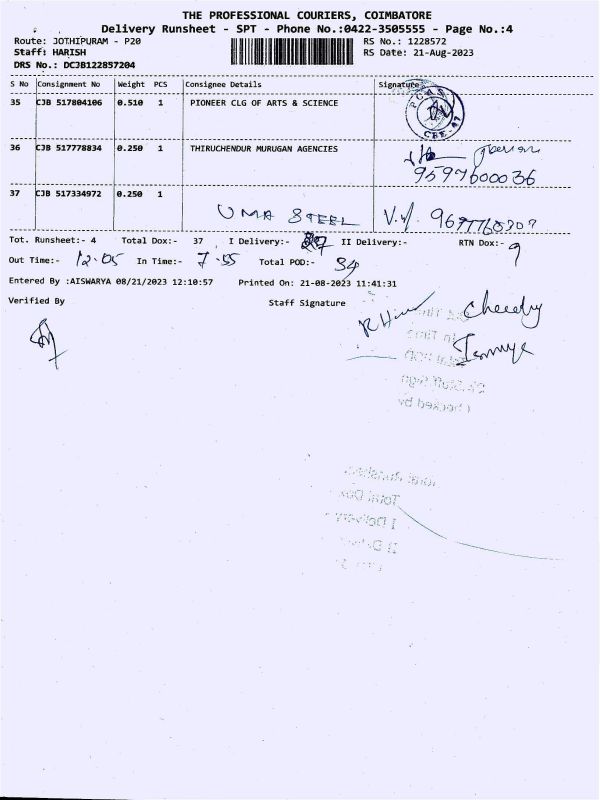 THE PROFESSIONAL COURIERS, COIMBATORE
Delivery Runsheet - SPT - Phone No.:0422-3505555 - Page No.:4
Route: JOTHIPURAM - P20 RS No.: 1228572
Staff: HARISH RS Date: 21-Aug-2023
DRS No.: DCJB122857204
S No Consignment No Weight PCS Consignee Details Signature
35 CJB 517804106 0.510 1 PIONEER CLG OF ARTS & SCIENCE
CBE-47
36 CJB 517778834 0.250 1 THIRUCHENDUR MURUGAN AGENCIES
9597600036
37 CJB 517334972 0.250 1
UMA STEEL
Tot. Runsheet:- 4 Total Dox:- 37 I Delivery:- II Delivery:- RTN Dox:- 9
Out Time:- 12.05 In Time:- 7.55 Total POD:- 34
Entered By :AISWARYA 08/21/2023 12:10:57 Printed On: 21-08-2023 11:41:31
Verified By Staff Signature